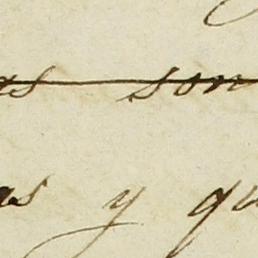 as son
as y qu